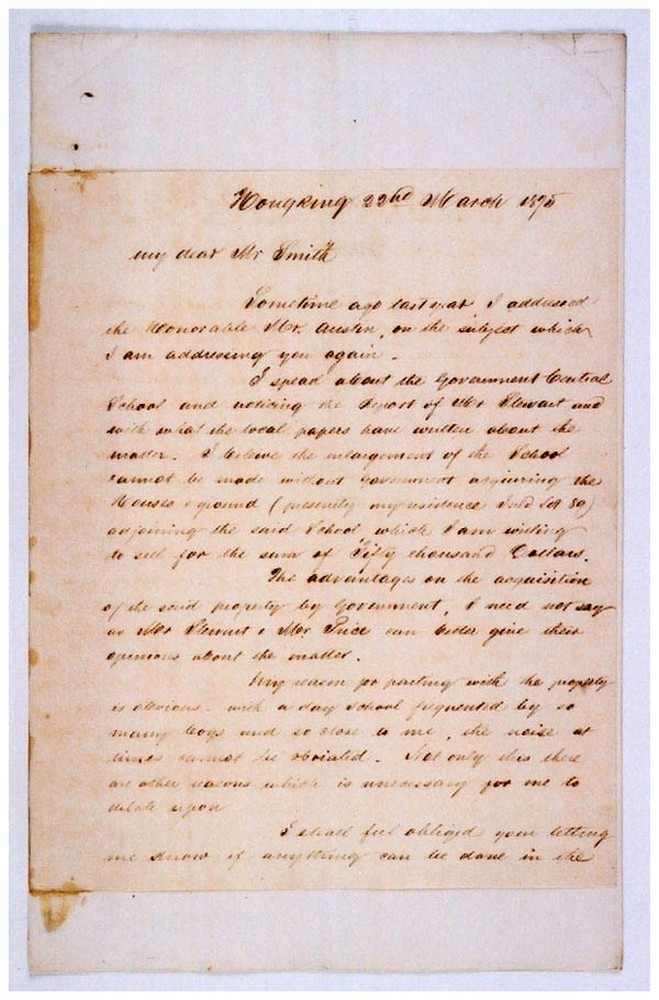 Hongkong 22nd March 1875
my dear Mr Smith
Sometime ago last year, I addressed
the Honorable Mr. Austin, on the subject which
I am addressing you again.
I spead about the Government Central
School and noticing the Report of Mr Stewart and
with what the local papers have written about the
matter. I beleive the enlargement of the School
cannot be made without Government acquiring the
Houses & ground (presently my residence Inld Lot 50)
adjoining the said School which I am willing
to sell for the sum of Fifty thousand Dollars.
The advantages on the acquisition
of the said property by Government, I need not say
as Mr Stewart & Mr Price can better give their
opinions about the matter.
My reason for parting with the property
is obvious. with a day School frequented by so
many boys and so close to me, the noise at
times cannot be obviated. Not only this there
are other reasons which is unnecessary for me to
dilate upon
I shall feel obliged your letting
me know if anything can be done in the